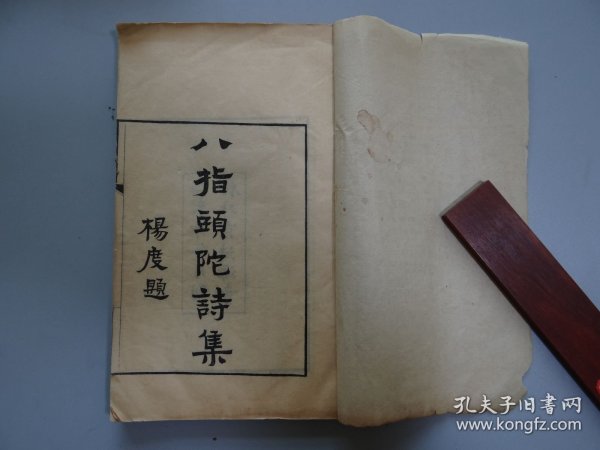 八指頭陀詩集
楊度題
孔夫子旧书网
www.kongfz.com